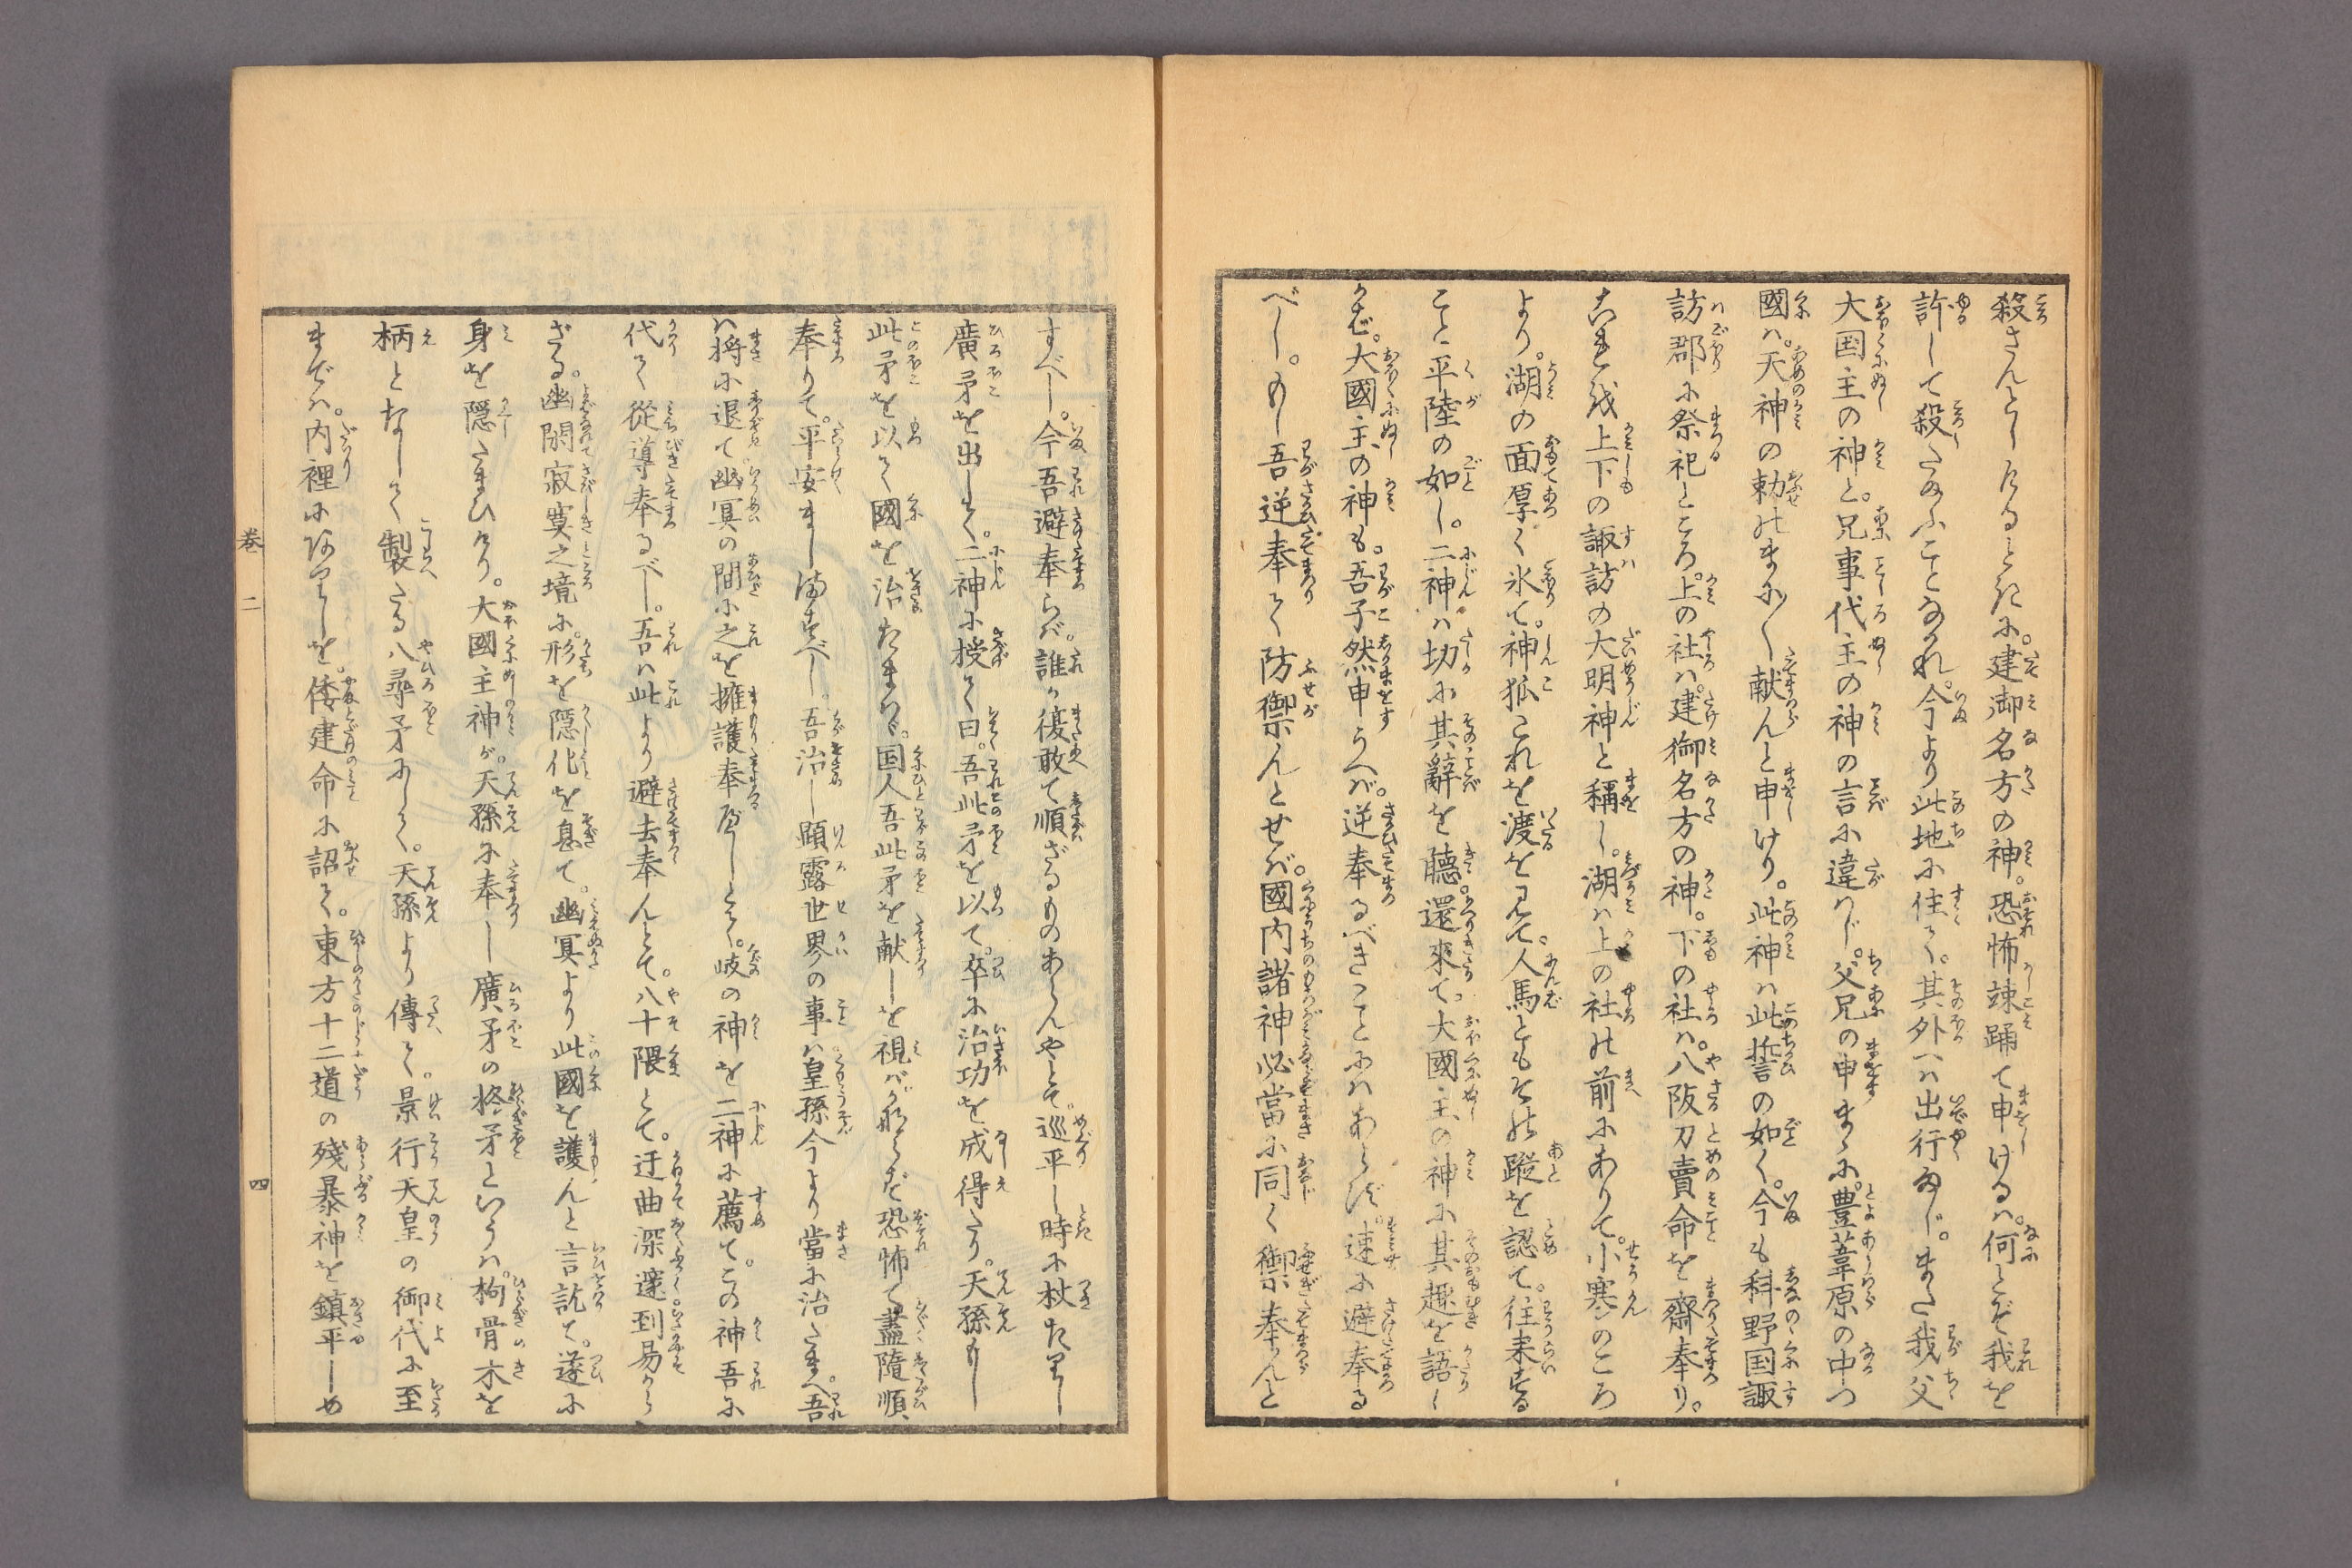 殺さんとしけるときに。建御名方の神。恐怖竦踊て申けるハ。何とぞ我を
許して殺たまふことなかれ。今より此地に住て。其外へハ出行まじ。また我父
大国主の神と。兄事代主の神の言に違ハじ。父兄の申まゝに。豊葦原の中つ
國ハ。天神の勅のまに〳〵献んと申けり。此神ハ此誓の如く。今も科野国諏
訪郡に祭祀ところ。上の社ハ。建御名方の神。下の社ハ。八阪刀賣命を齋奉り。
これを上下の諏訪の大明神と稱し。湖ハ上の社の前にありて。小寒のころ
より。湖の面厚く氷て。神狐これを渡を見て。人馬ともその蹤を認て。往来する
こと平陸の如し。二神ハ切に其辭を聽。還來て。大國主の神に其趣を語し
かば。大國主の神も。吾子然申うへバ。逆奉るべきことにハあらず。速に避奉る
べし。もし吾逆奉て防禦んとせバ。國内諸神必當に同く禦奉んと
すべし。今吾避奉らバ。誰か復敢て順ざるものあらんやとて。巡平し時に杖たりし
廣矛を出して。二神に授て曰。吾此矛を以て。卒に治功を成得たり。天孫もし
此矛を以て國を治たまハヾ。国人吾此矛を献しを視バ。かならず恐怖て盡隨順
奉りて。平安ましますべし。吾治し顯露世界の事ハ皇孫今より當に治たまへ。吾
ハ将に退て幽冥の間に之を擁護奉べしとて。岐の神を二神に薦て。この神吾に
代て從導奉るべし。吾ハ此より避去奉んとて。八十隈とて。迂曲深邃到易から
ざる。幽閑寂寞之境に。形を隠化を息て。幽冥より此國を護んと言訖て。遂に
身を隠たまひけり。大國主神が。天孫に奉し廣矛の柊矛といふハ。枸骨木を
柄となして製たる八尋矛にして。天孫より傳て。景行天皇の御代に至
までハ。内裡にありしを。倭建命に詔て。東方十二道の殘暴神を鎮平しめ
巻二
四